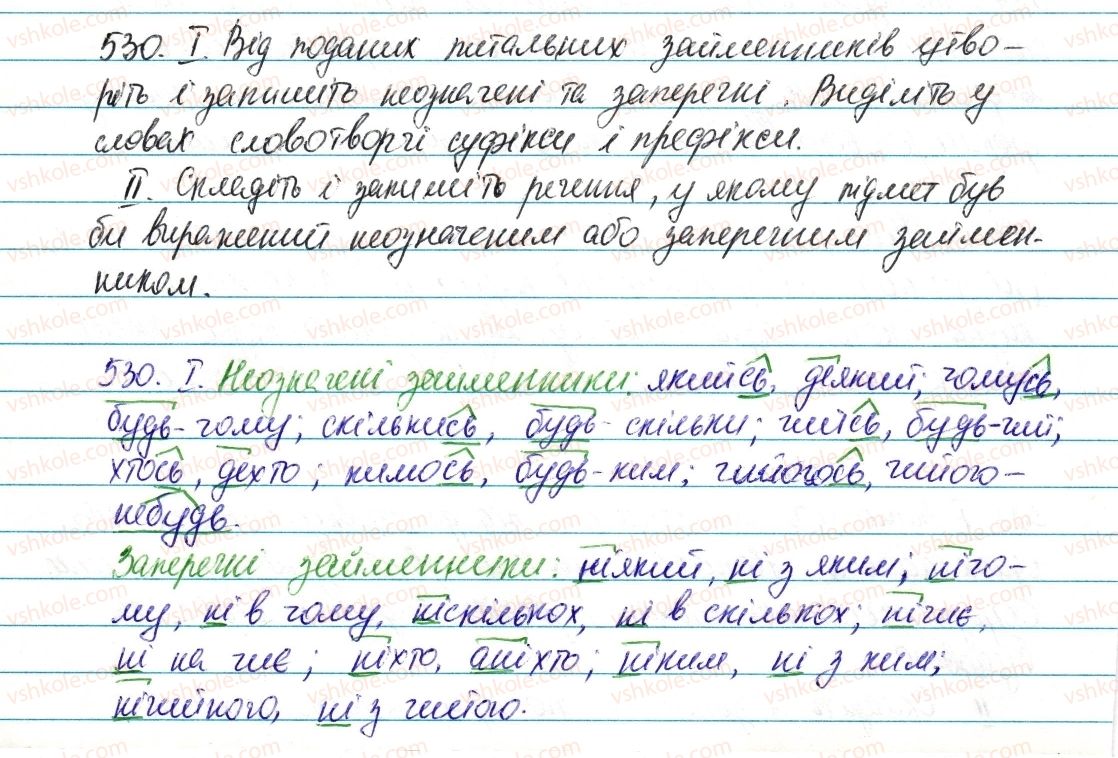 530. І. Від поданих питальних займенників утво-
ріть і запишіть неозначені та заперечні. Виділіть у
словах словотворчі суфікси і префікси.
ІІ. Складіть і запишіть речення, у якому підмет був
би виражений неозначеним або заперечним займен-
ником.
530. І. Неозначені займенники: якийсь, деякий; чомусь,
будь-чому; скількись, будь-скільки; чийсь, будь-чий;
хтось, дехто; кимось, будь-ким; чийогось, чийого-
небудь.
Заперечні займенники: ніякий, ні з яким; нічо-
му, ні в чому, ніскількох, ні в скількох; нічиє,
ні на чиє; ніхто, аніхто; ніким, ні з ким;
нічийного, ні з чийого.